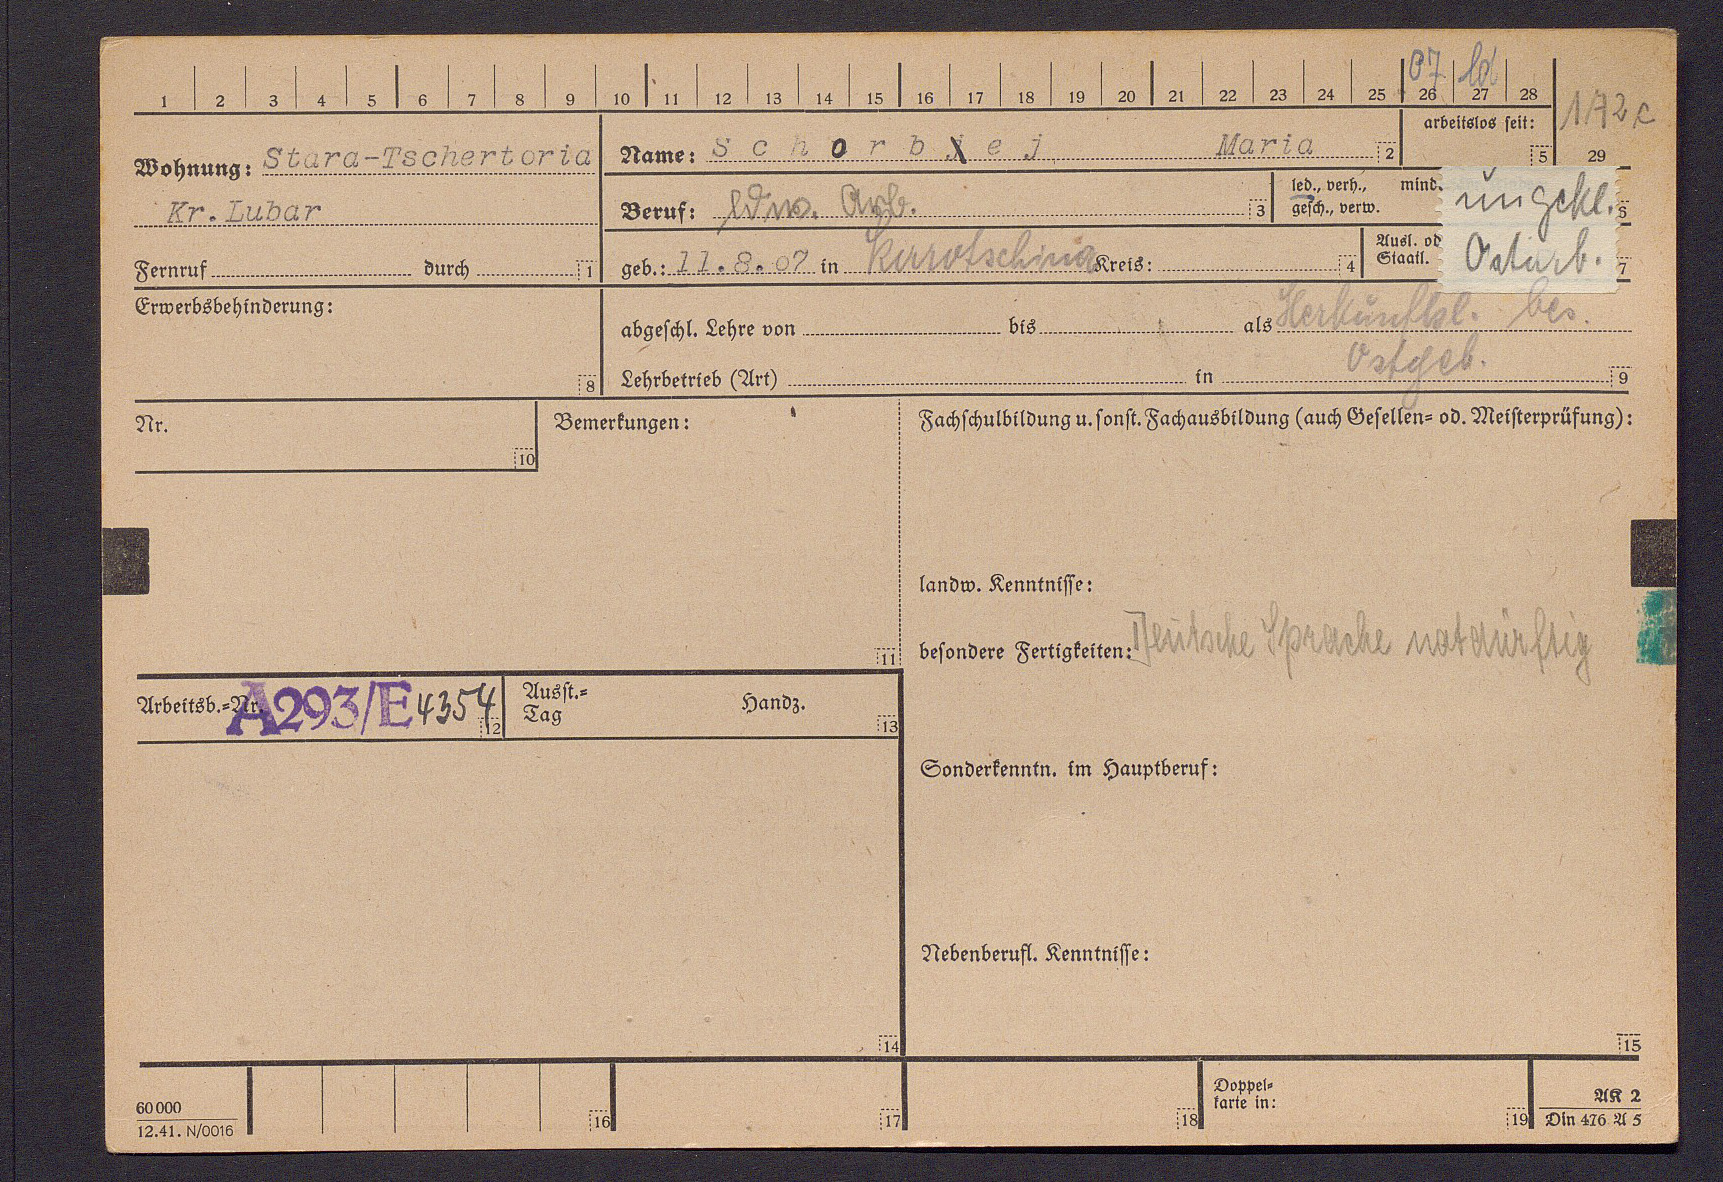 07 ld
1 2 3 4 5 6 7 8 9 10 11 12 13 14 15 16 17 18 19 20 21 22 23 24 25 26 27 28
172c
29
Wohnung: Stara-Tschertoria
Kr. Lubar
Fernruf durch 1
Name: Schorbej Maria 2
arbeitslos seit: 5
Beruf: ldw. Arb. 3
led., verh., gesch., verw.
mind.
ungekl. 6
geb.: 11.8.07 in Kreis: 4
Ausl. od
Staatl.
Ostarb. 7
Erwerbsbehinderung:
8
abgeschl. Lehre von bis als Herkunftsl. bes.
Ostgeb.
Lehrbetrieb (Art) in 9
Nr.
10
Bemerkungen:
11
Fachschulbildung u. sonst. Fachausbildung (auch Gesellen- od. Meisterprüfung):
landw. Kenntnisse:
besondere Fertigkeiten: Deutsche Sprache notdürftig
Arbeitsb.-Nr. A293/E 4354 12
Ausst.-
Tag Handz. 13
Sonderkenntn. im Hauptberuf:
Nebenberufl. Kenntnisse:
14
15
60000
12.41. N/0016
16
17
18
Doppel-
karte in: 19
AK 2
Din 476 A 5